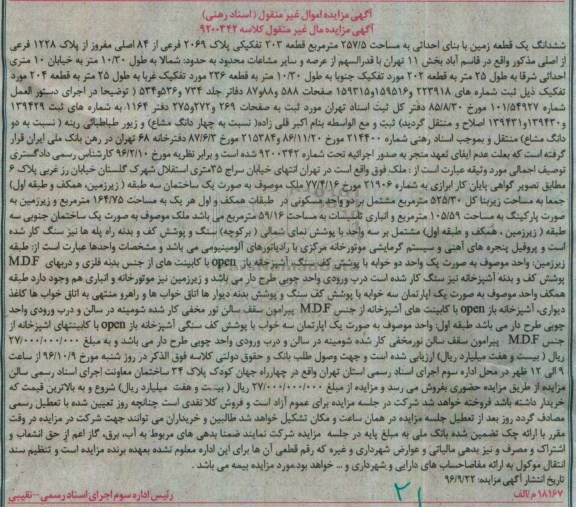 آگهی مزایده اموال غیر منقول (اسناد رهنی)
آگهی مزایده مال غیر منقول کلاسه ۹۲۰۰۳۴۲
ششدانگ یک قطعه زمین با بنای احداثی به مساحت ۲۵۷/۵ مترمربع قطعه ۲۰۳ تفکیکی پلاک ۲۰۶۹ فرعی از ۸۴ اصلی مفروز از پلاک ۱۲۲۸ فرعی
از اصلی مذکور واقع در قاسم آباد بخش ۱۱ تهران با قدرالسهم از عرصه و سایر مشاعات محدود به حدود: شمالا به طول ۱۰/۳۰ متر به خیابان ۱۰ متری
احداثی شرقا به طول ۲۵ متر به قطعه ۲۰۲ مورد تفکیک جنوبا به طول ۱۰/۳۰ متر به قطعه ۲۳۶ مورد تفکیک غربا به طول ۲۵ متر به قطعه ۲۰۴ مورد
تفکیک ذیل ثبت شماره های ۲۲۳۹۱۸ و ۱۵۹۵۱۶ و۱۵۹۳۱۵ صفحات ۵۸۸ و۸۸ و۸۷ دفاتر جلد ۷۳۴ و۵۳۶ و۵۳۴ ( توضیحا در اجرای دستور العمل
شماره ۱۰۱/۵۴۹۲۷ مورخ ۸۵/۸/۳۰ دفتر کل ثبت اسناد تهران مورد ثبت به صفحات ۲۶۹ و۲۷۲ و۲۷۵ دفتر ۱۱۶۴ به شماره های ثبت ۱۳۹۴۲۹
و۱۳۹۴۳۰ و۱۳۹۴۳۱ اصلاح و منتقل گردید) ثبت و مع الواسطه بنام اکبر قلی زاده( نسبت به چهار دانگ مشاع) و زیور طباطبائی رینه ( نسبت به دو
دانگ مشاع) منتقل و بموجب اسناد رهنی شماره ۲۱۴۴۰۰ مورخ ۸۶/۱۱/۲۰ و ۲۱۵۳۸۴ مورخ ۸۷/۶/۳ دفترخانه ۶۸ تهران در رهن بانک ملی ایران قرار
گرفته است که بعلت عدم ایفای تعهد منجر به صدور اجرائیه تحت شماره ۹۲۰۰۳۴۲ شده است و برابر نظریه مورخ ۹۶/۲/۱۰ کارشناس رسمی دادگستری
توصیف اجمالی مورد وثیقه عبارت است از : ملک فوق واقع است در تهران انتهای خیابان سراج ۳۵متری استقلال شهرک گلستان خیابان رز غربی پلاک ۶
مطابق تصویر گواهی پایان کار ابرازی به شماره ۲۱۹۰۶ مورخ ۷۷/۴/۱۶ ملک موصوف به صورت یک ساختمان سه طبقه ( زیرزمین، همکف و طبقه اول)
جمعا به مساحت زیربنا کل ۵۲۵/۳۰ مترمربع مشتمل بر دو واحد مسکونی در طبقات همکف و اول هر یک به مساحت ۱۶۴/۷۵ مترمربع و زیرزمین به
صورت پارکینگ به مساحت ۱۰۵/۵۹ مترمربع و انباری تاسیسات به مساحت ۵۹/۱۶ مترمربع می باشد ملک موصوف به صورت یک ساختمان جنوبی سه
طبقه ( زیرزمین ، همکف و طبقه اول) مشتمل بر سه واحد با پوشش نمای شمالی ( برکوچه) سنگ و پوشش کف و بدنه راه پله ها نیز سنگ کار شده
است و پروفیل پنجره های آهنی و سیستم گرمایشی موتورخانه مرکزی با رادیاتورهای آلومینیومی می باشد و مشخصات واحدها عبارت است از: طبقه
زیرزمین: واحد موصوف به صورت یک واحد دو خوابه با پوشش کف سنگ، آشپزخانه باز open با کابینت های از جنس بدنه فلزی و دربهای M.D.F
پوشش کف و بدنه آشپزخانه نیز سنگ کار شده است درب ورودی واحد چوبی طرح دار می باشد و زیرزمین نیز موتورخانه و انباری هم وجود دارد طبقه
همکف واحد موصوف به صورت یک آپارتمان سه خوابه با پوشش کف سنگ و پوشش بدنه دیوار ها اتاق خواب ها و راهرو منتهی به اتاق خواب ها کاغذ
دیواری، آشپزخانه باز open با کابینت های آشپزخانه از جنس M.D.F پیرامون سقف سالن نور مخفی کار شده شومینه در سالن و درب ورودی واحد
چوبی طرح دار می باشد طبقه اول: واحد موصوف به صورت یک آپارتمان سه خواب با پوشش کف سنگی آشپزخانه باز open با کابینتهای آشپزخانه از
جنس M.D.F پیرامون سقف سالن نورمخفی کار شده شومینه در سالن و درب ورودی واحد چوبی طرح دار می باشد و به مبلغ ۲۷/۰۰۰/۰۰۰/۰۰۰
ریال ( بیست و هفت میلیارد ریال) ارزیابی شده است و جهت وصول طلب بانک و حقوق دولتی کلاسه فوق الذکر در روز شنبه مورخ ۹۶/۱۰/۹ از ساعت
۹ الی ۱۲ ظهر در محل اداره سوم اجرای اسناد رسمی استان تهران واقع در چهارراه جهان کودک پلاک ۳۴ ساختمان معاونت اجرای اسناد رسمی سالن
مزایده از طریق مزایده حضوری بفروش می رسد و مزایده از مبلغ ۲۷/۰۰۰/۰۰۰/۰۰۰ ریال ( بیست و هفت میلیارد ریال) شروع و به بالاترین قیمت که
خریدار داشته باشد فروخته خواهد شد شرکت در جلسه مزایده برای عموم آزاد است و فروش کلا نقدی است چنانچه روز تعیین شده با تعطیل رسمی
مصادف گردد روز بعد از تعطیل جلسه مزایده در همان ساعت و مکان تشکیل خواهد شد طالبین و خریداران می توانند جهت شرکت در مزایده در وقت
مقرر با ارائه چک تضمین شده بانک ملی به مبلغ پایه در جلسه مزایده شرکت نمایند ضمنا بدهی های مربوط به آب، برق، گاز اعم از حق انشعاب و
اشتراک و مصرف و نیز بدهی مالیاتی و عوارض شهرداری و غیره که رقم قطعی آن ها برای این اداره معلوم نشده بعهده برنده مزایده است و تنظیم سند
انتقال موکول به ارائه مفاصاحساب های دارایی و شهرداری و ... خواهد بود مورد مزایده بیمه می باشد .
تاریخ انتشار آگهی مزایده: ۹۶/۹/۲۲
۱۸۱۶۷ م/الف رئیس اداره سوم اجرای اسناد رسمی – نقیبی
۲۱